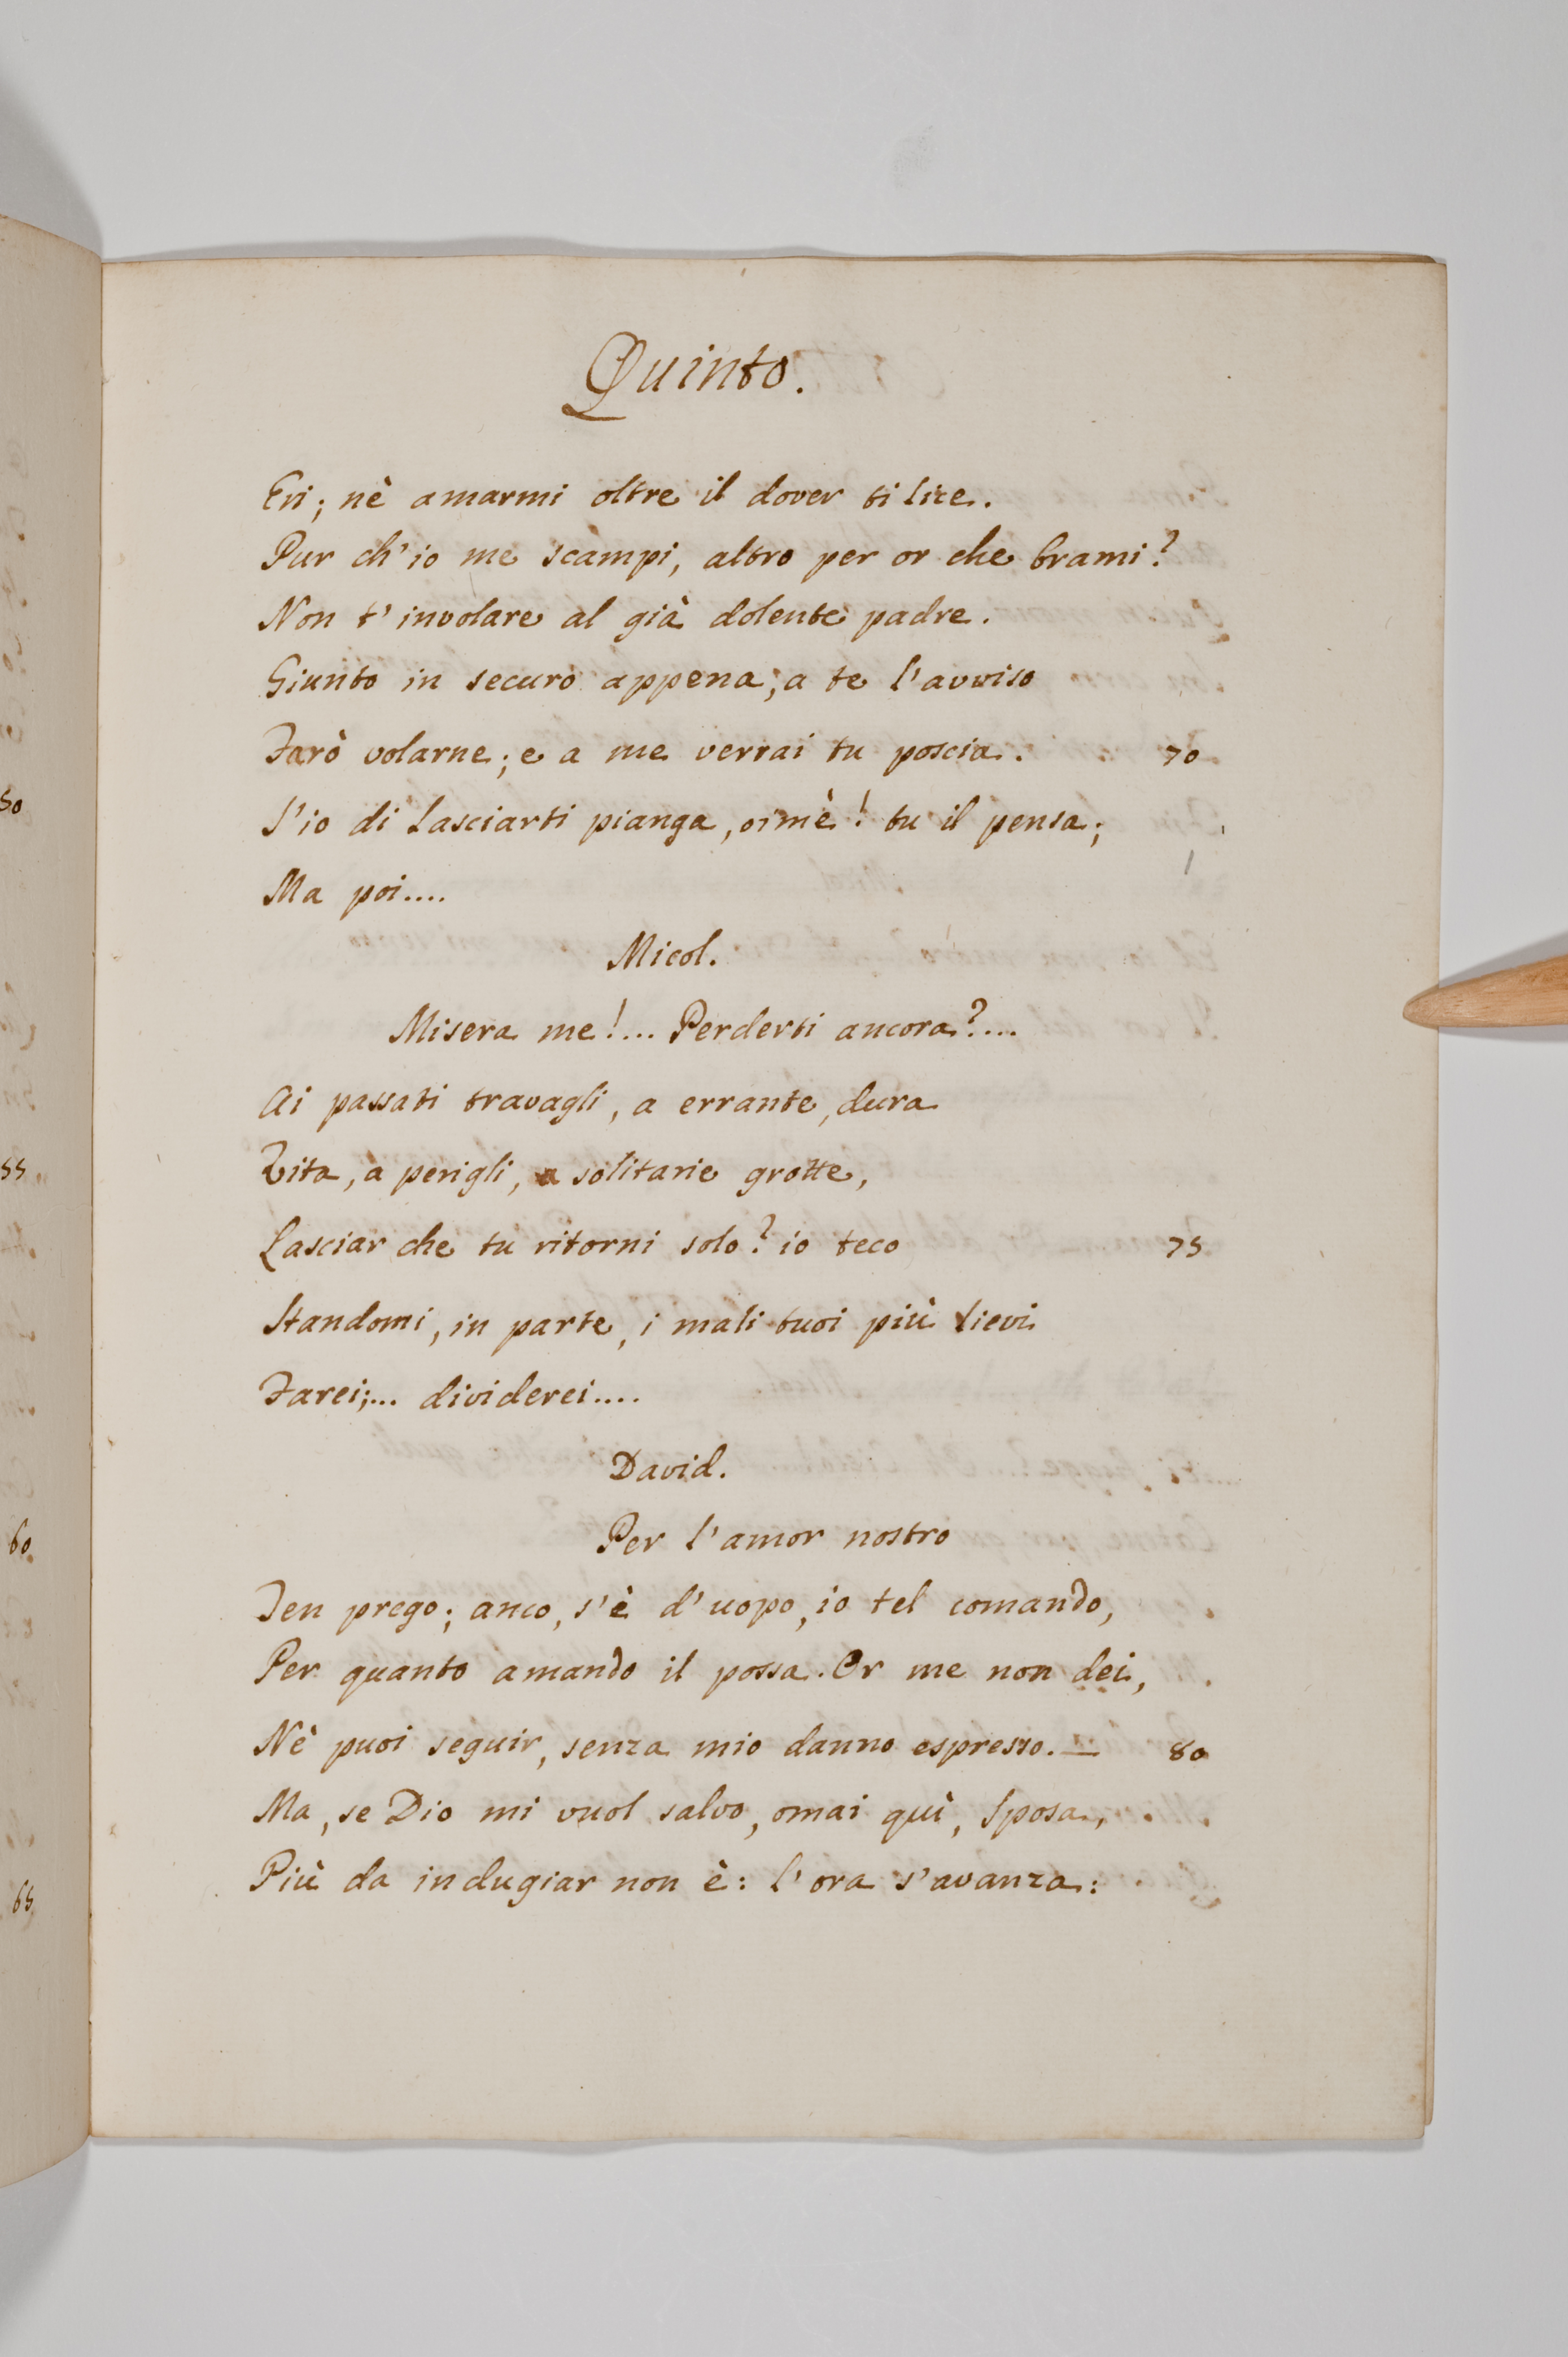 Quinto.
Eri; nè amarmi oltre il dover ti lice.
Pur ch'io me scampi, altro per or che brami?
Non t'involare al già dolente padre.
Giunto in securo appena, a te l'avviso
Farò volarne; e a me verrai tu poscia. 70
S'io di lasciarti pianga, oimè! tu il pensa;
Ma poi....
Micol.
Misera me!... Perderti ancora?....
Ai passati travagli, a errante, dura
Vita, a perigli, a solitarie grotte,
Lasciar che tu ritorni solo? io teco 75
Standomi, in parte, i mali tuoi più lievi
Farei;... dividerei....
David.
Per l'amor nostro
Ten prego; anco, s'è d'uopo, io tel comando,
Per quanto amando il possa. Or me non dei,
Nè puoi seguir, senza mio danno espresso.— 80
Ma, se Dio mi vuol salvo, omai quì, Sposa,
Più da indugiar non è: l'ora s'avanza:
50
55
60
65